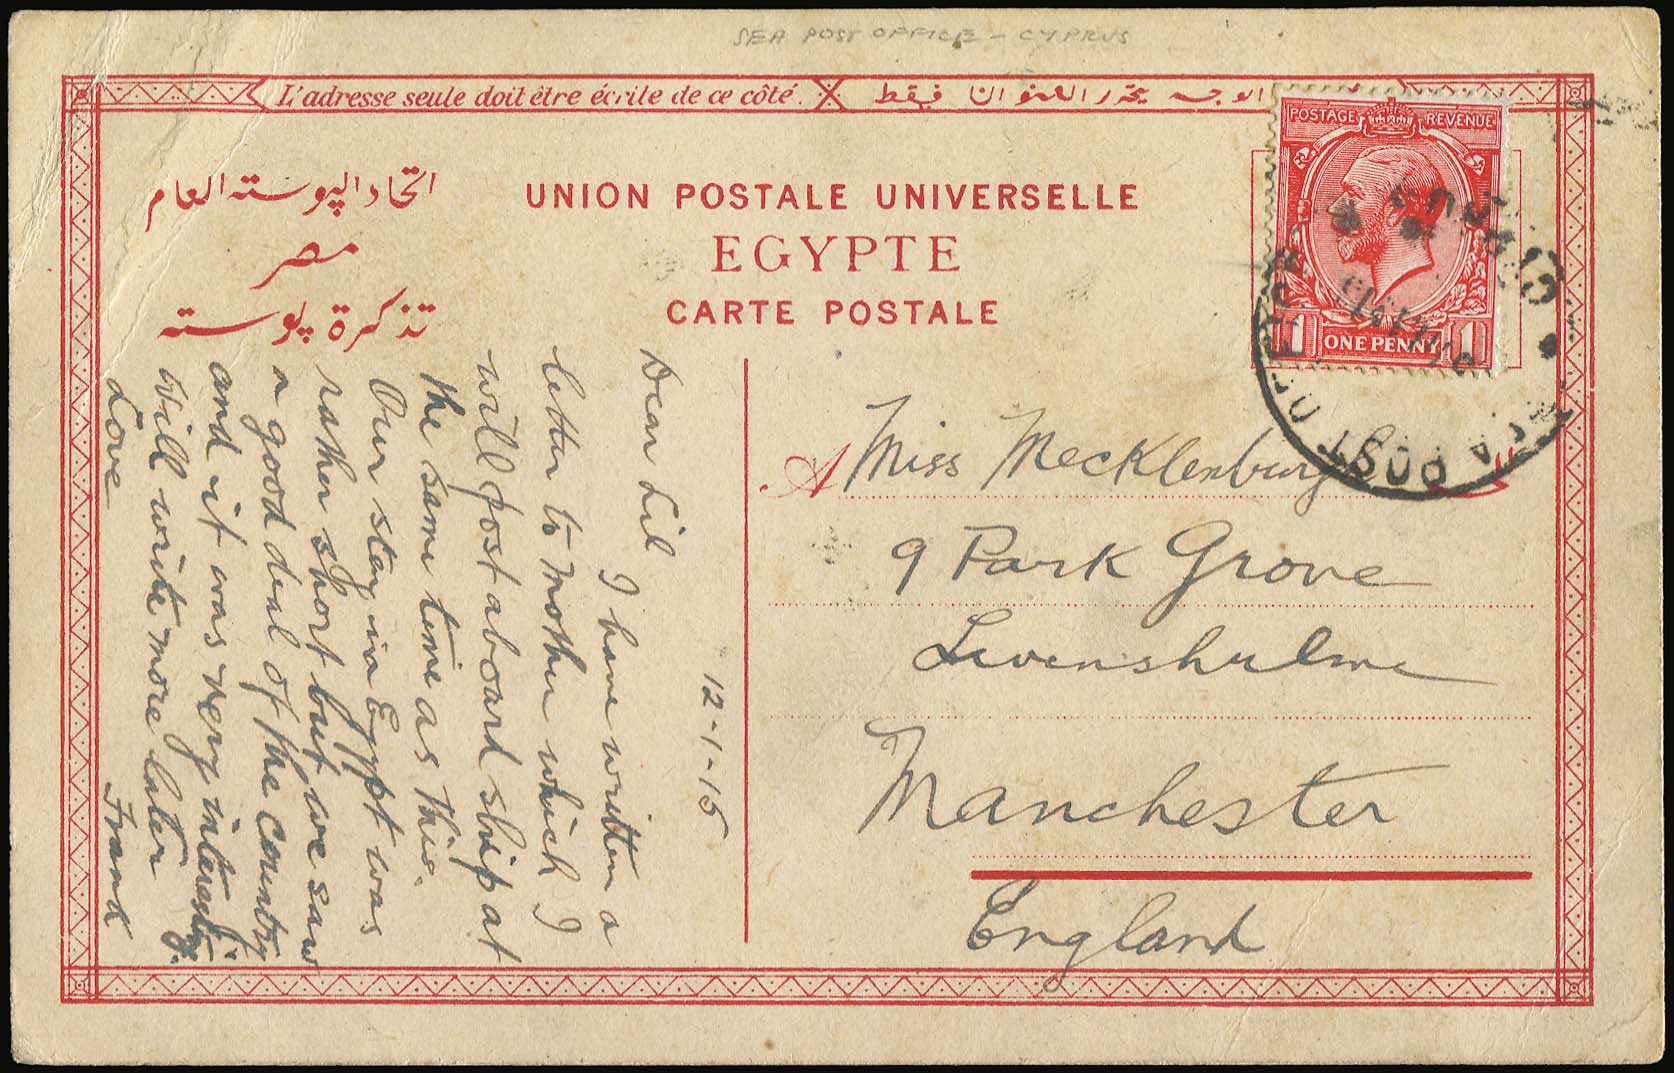 SEA POST OFFICE - CYPRUS
L'adresse seule doit être écrite de ce côté.
الوجه يحرر العنوان فيقط
اتحاد البوسته العام
مصر
تذكرة بوسته
UNION POSTALE UNIVERSELLE
EGYPTE
CARTE POSTALE
POSTAGE REVENUE
1 ONE PENNY 1
CYPRUS
POST
A Miss Mecklenburg
9 Park Grove
Levenshulme
Manchester
England
12-1-15
Dear Lil
I have written a
letter to Mother which I
will post aboard ship at
the same time as this.
Our stay in Egypt was
rather short but we saw
a good deal of the country
and it was very interesting.
Will write more later
Love Frank